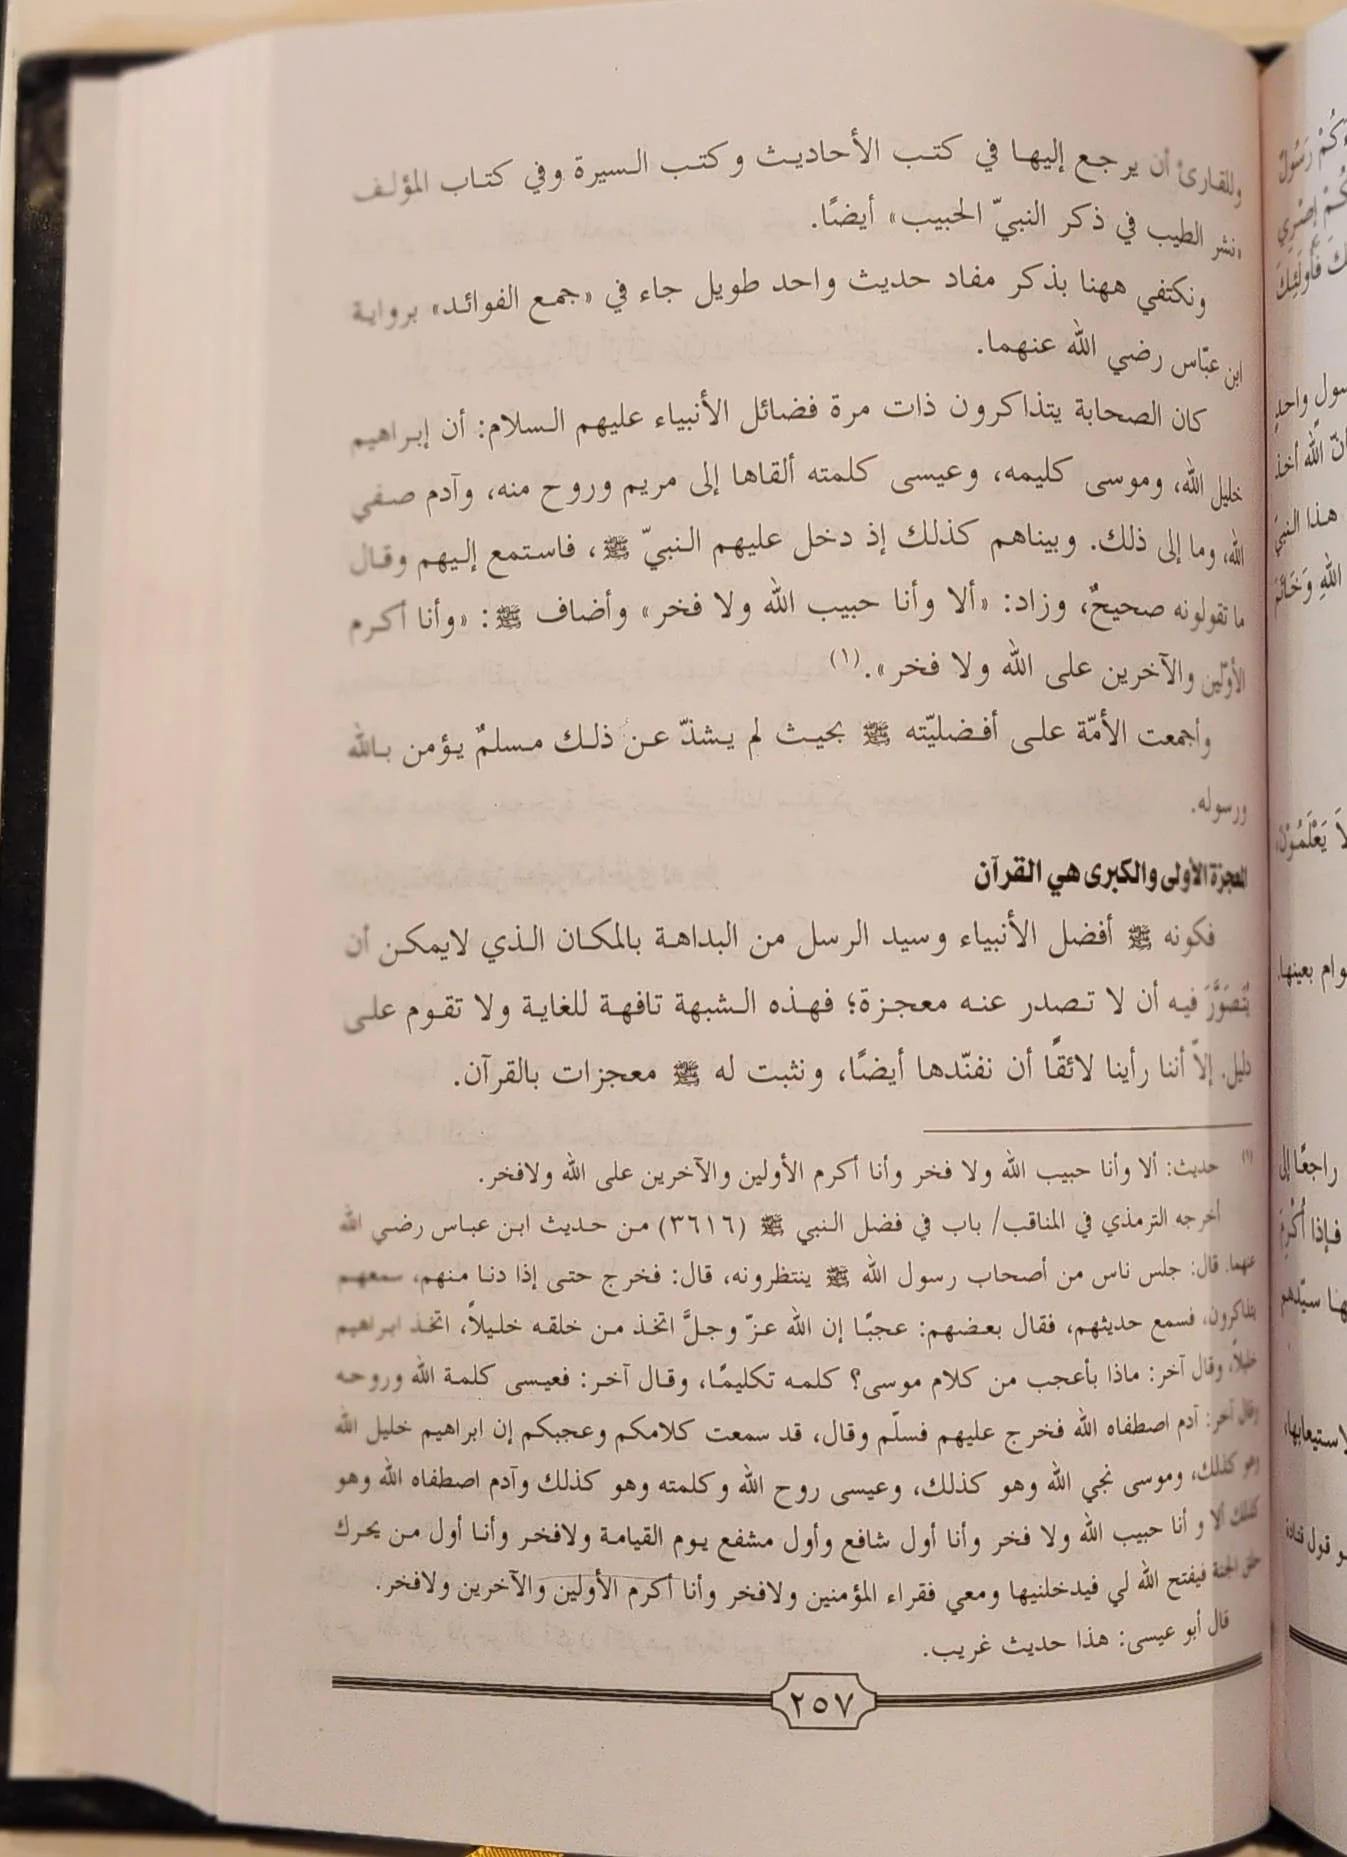 وللقارئ أن يرجع إليها في كتب الأحاديث وكتب السيرة وفي كتاب المؤلف
«نشر الطيب في ذكر النبيّ الحبيب» أيضًا.
ونكتفي ههنا بذكر مفاد حديث واحد طويل جاء في «جمع الفوائد» برواية
ابن عبّاس رضي الله عنهما.
كان الصحابة يتذاكرون ذات مرة فضائل الأنبياء عليهم السلام: أن إبراهيم
خليل الله، وموسى كليمه، وعيسى كلمته ألقاها إلى مريم وروح منه، وآدم صفي
الله، وما إلى ذلك. وبيناهم كذلك إذ دخل عليهم النبيّ ﷺ، فاستمع إليهم وقال
ما تقولونه صحيحٌ، وزاد: «ألا وأنا حبيب الله ولا فخر» وأضاف ﷺ: «وأنا أكرم
الأوّلين والآخرين على الله ولا فخر».(١)
وأجمعت الأمّة على أفضليّته ﷺ بحيث لم يشذّ عن ذلك مسلمٌ يؤمن بالله
ورسوله.
المعجزة الأولى والكبرى هي القرآن
فكونه ﷺ أفضل الأنبياء وسيد الرسل من البداهة بالمكان الذي لايمكن أن
يُتصَوَّرَ فيه أن لا تصدر عنه معجزة؛ فهذه الشبهة تافهة للغاية ولا تقوم على
دليل. إلاّ أننا رأينا لائقًا أن نفنّدها أيضًا، ونثبت له ﷺ معجزات بالقرآن.
(١) حديث: ألا وأنا حبيب الله ولا فخر وأنا أكرم الأولين والآخرين على الله ولافخر.
أخرجه الترمذي في المناقب/ باب في فضل النبي ﷺ (٣٦١٦) من حديث ابن عباس رضي الله
عنهما. قال: جلس ناس من أصحاب رسول الله ﷺ ينتظرونه، قال: فخرج حتى إذا دنا منهم، سمعهم
يتذاكرون، فسمع حديثهم، فقال بعضهم: عجبًا إن الله عزّ وجلَّ اتخذ من خلقه خليلاً، اتخذ ابراهيم
خليلاً، وقال آخر: ماذا بأعجب من كلام موسى؟ كلمه تكليمًا، وقال آخر: فعيسى كلمة الله وروحه
وقال آخر: آدم اصطفاه الله فخرج عليهم فسلّم وقال، قد سمعت كلامكم وعجبكم إن ابراهيم خليل الله
وهو كذلك، وموسى نجي الله وهو كذلك، وعيسى روح الله وكلمته وهو كذلك وآدم اصطفاه الله وهو
كذلك ألا و أنا حبيب الله ولا فخر وأنا أول شافع وأول مشفع يوم القيامة ولافخر وأنا أول من يحرك
حلق الجنة فيفتح الله لي فيدخلنيها ومعي فقراء المؤمنين ولافخر وأنا أكرم الأولين والآخرين ولافخر.
قال أبو عيسى: هذا حديث غريب.
٢٥٧